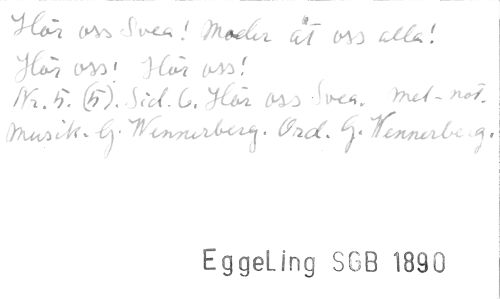 Hör oss Svea! Moder åt oss alla!
Hör oss! Hör oss!
Nr. 5. (5). Sid. 6. Hör oss Svea. met-not.
Musik. G. Wennerberg. Ord. G. Wennerberg.
EggeLing SGB 1890